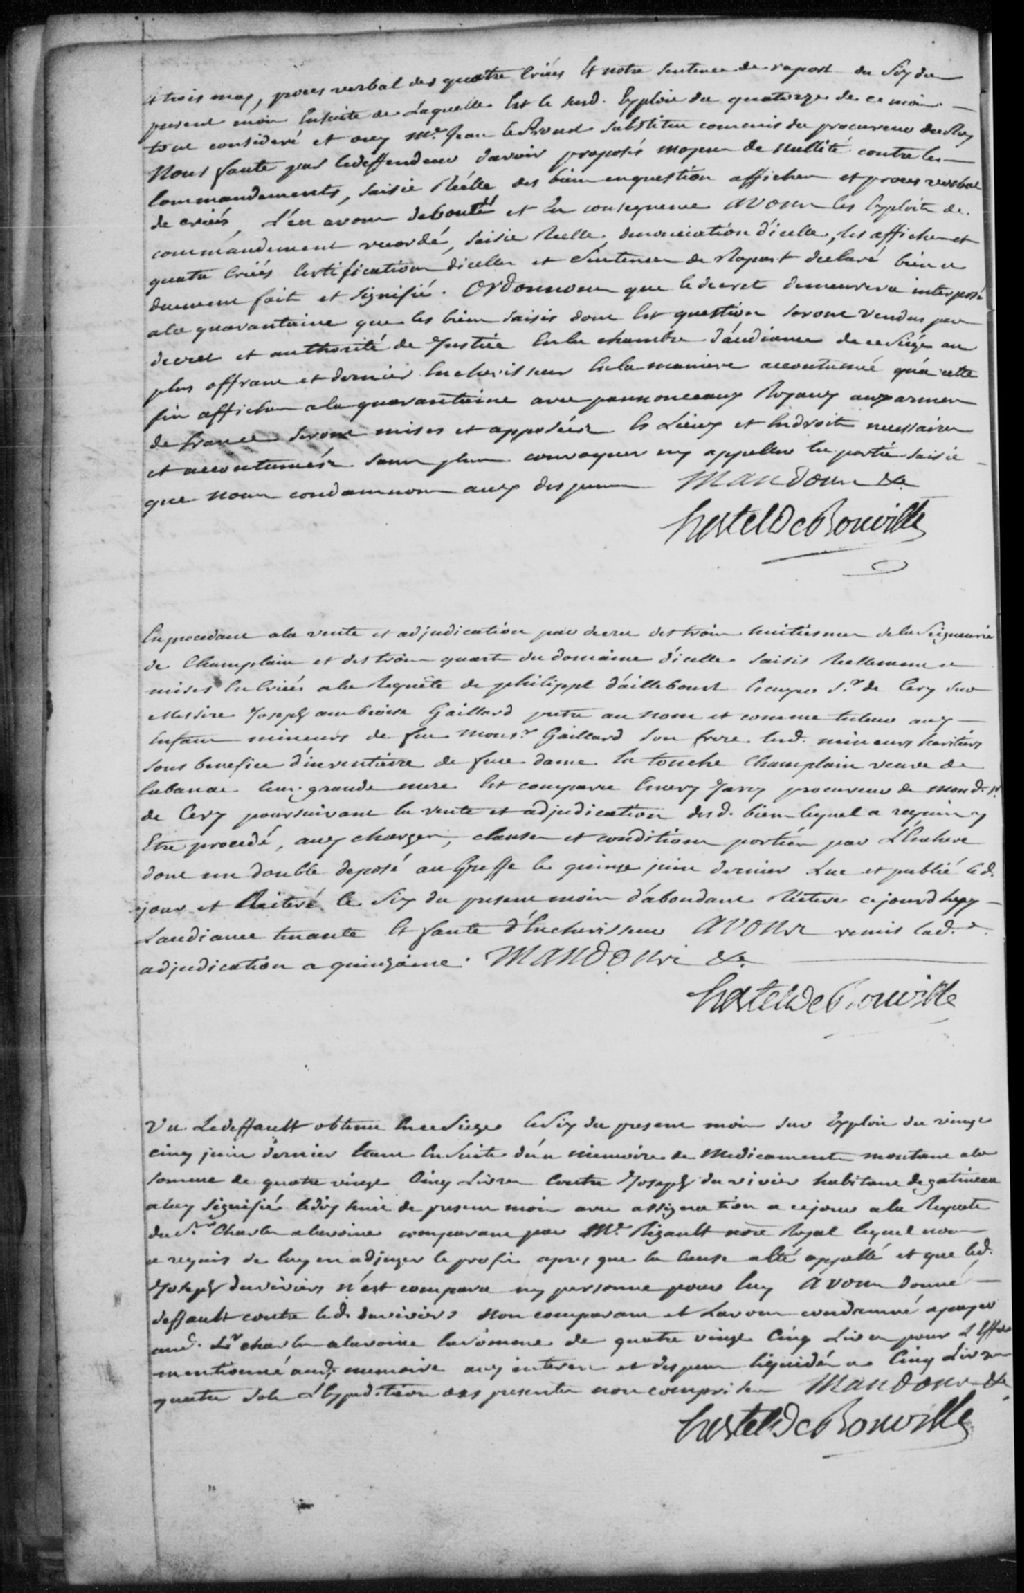 & trois may, proces verbal des quatre criées & notre sentence de raport du six du
present mois ensuitte de laquelle est le susd. Exploit du quatorze de ce mois
tout consideré et ouy Mr. Jean le Proust substitut commis du procureur du Roy
Nous faute par ledeffendeur davoir proposés moyen de nullité contre les
Commandements, saisie Réelle des bien enquestion affiches et proces verbal
de criées, l'en avons debouté et en consequence avons les Exploits de
commandement recordé, saisie Réelle denonciation d'icelle, les affiches et
quatre Criées Certification dicelles et Sentence de Raport declaré bien et
duement fait et signifié. Ordonnons que le decret demeurera interposé
ala quarantaine que les bien saisis dont est question seront vendus par
decret et authorité de Justice En la chambre d'audiance de ce siége au
plus offrant et dernier Encherisseur En la maniere accoutumé qu'a cette
fin affiches ala quarantaine avec pannonceaux Royaux aux armes
de france seront mises et apposées es Lieux et Endroits necessaires
et accoutumés sans plus convoquer ny appeller la partie saisie
que nous condamnons aux depens Mandons &a
hertel De Rouville
En procedant ala vente et adjudication par decret des trois huitiesmes de la Seigneurie
de Champlain et des trois quart du domaine d'icelle saisis Réellement et
mises En Criées ala Requête de philippe d'ailleboust Escuyer Sr. de Cery sur
Messire Joseph ambroise Gaillard prêtre au nom et comme tuteur aux
Enfans mineurs de feu Monsr. Gaillard son frere lesd. mineurs heritiers
sous benefice d'inventaire de feue dame la touche Champlain veuve de
labanae leur grande mere Est comparu Emery Jary procureur de mond. Sr.
de Cery poursuivant la vente et adjudication desd. bien lequel a requis y
Etre procedé, aux charges, clauses et conditions portées par L'Enchere
dont un double deposé au Greffe le quinze juin dernier Lue et publié led.
jour et Réiteré le six du present mois d'abondant Réitere cejourd'huy
Laudiance tenante & faute d'Encherisseur avons remis lad.
adjudication a quinzaine. Mandons &a
hertel De Rouville
Vu Ledeffault obtenu En ce Siege le six du present mois sur Exploit du vingt
cinq juin dernier Etant En suite d'un memoire de Medicaments montant ala
somme de quatre vingt Cinq Livres Contre Joseph duvivier habitant de gatineau
a luy signifié ledix huit de present mois avec assignation a cejour ala Requête
du Sr. Charles alavoine comparant par Me. Rigault nore Royal lequel nous
a requis de luy en adjuger le profit apres que la Cause a Eté appellé et que led.
Joseph duviviers n'est comparu ny personne pour luy avons donné
deffault contre led. duviviers non comparant et Lavons condamné a payer
aud. Sr. charles alavoine la somme de quatre vingt Cinq Livres pour L'Effet
mentionné aud. memoire aux interest et depens liquidés a Cinq Livres
quatre sols L'Expedition des presentes non comprises Mandons &a
hertel De Rouville